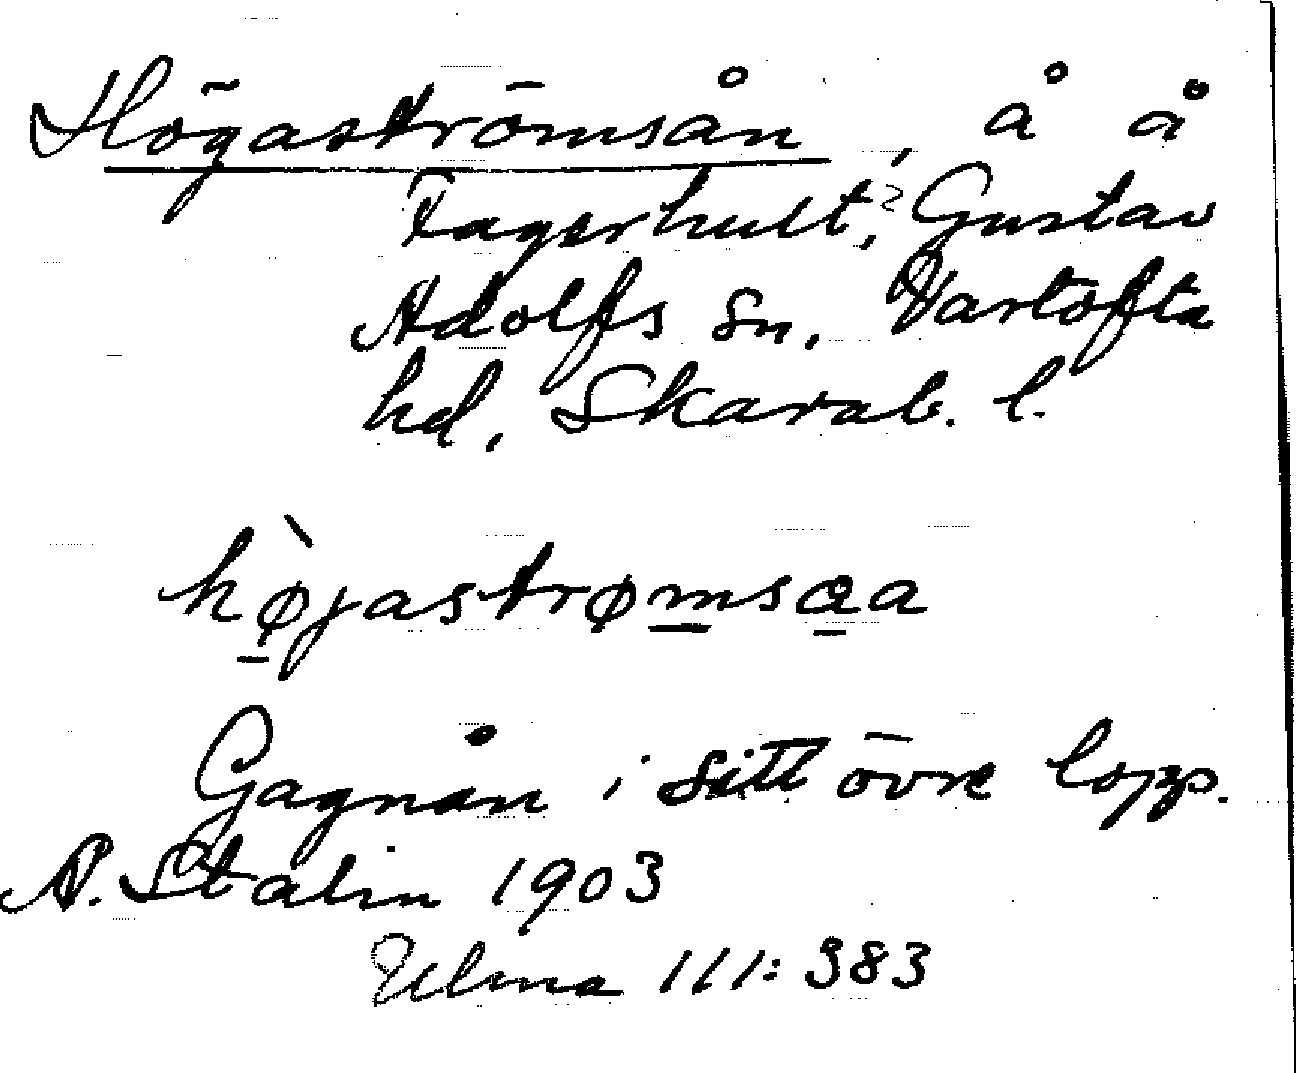 Högaströmsån, å å
Fagerhult?, Gustav
Adolfs sn, Vartofta
hd, Skarab. l.
hø̀jastrømsaa
Gagnån i sitt övre lopp.
A. Stalin 1903
Ulma 111:383